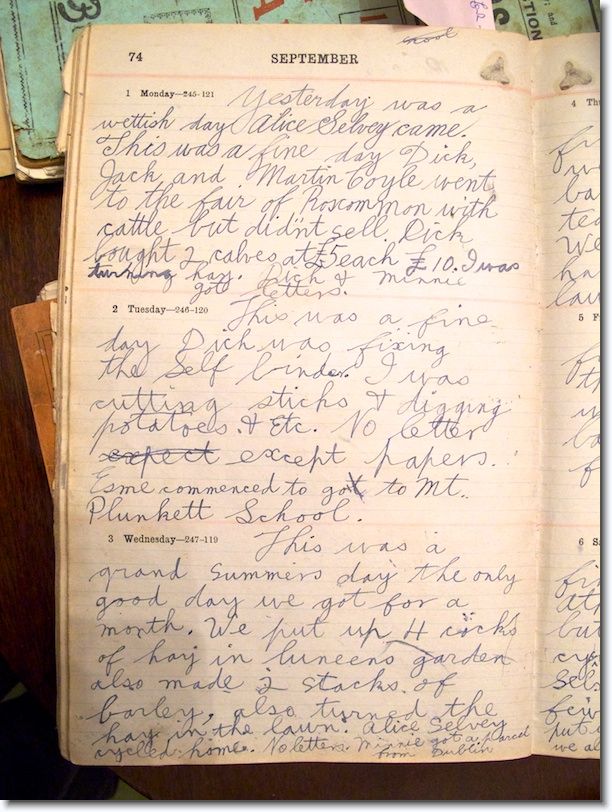 74 SEPTEMBER
1 Monday—245-121
Yesterday was a
wettish day Alice Selvey came.
This was a fine day Dick,
Jack and Martin Coyle went
to the fair of Roscommon with
cattle but didn't sell. Dick
bought 2 calves at £5 each £10. I was
turning hay. Dick & Minnie
got letters.
2 Tuesday—246-120
This was a fine
day Dick was fixing
the Self binder. I was
cutting sticks & digging
potatoes. & Etc. No letter
expect except papers.
Esme commenced to go to Mt.
Plunkett School.
3 Wednesday—247-119
This was a
grand Summers day the only
good day we got for a
month. We put up 4 cocks
of hay in luneens garden
also made 2 stacks of
barley, also turned the
hay in the lawn. Alice Selvey
cycled home. No letters. Minnie got a parcel
from Dublin
4 Th
5 F
6 Sa